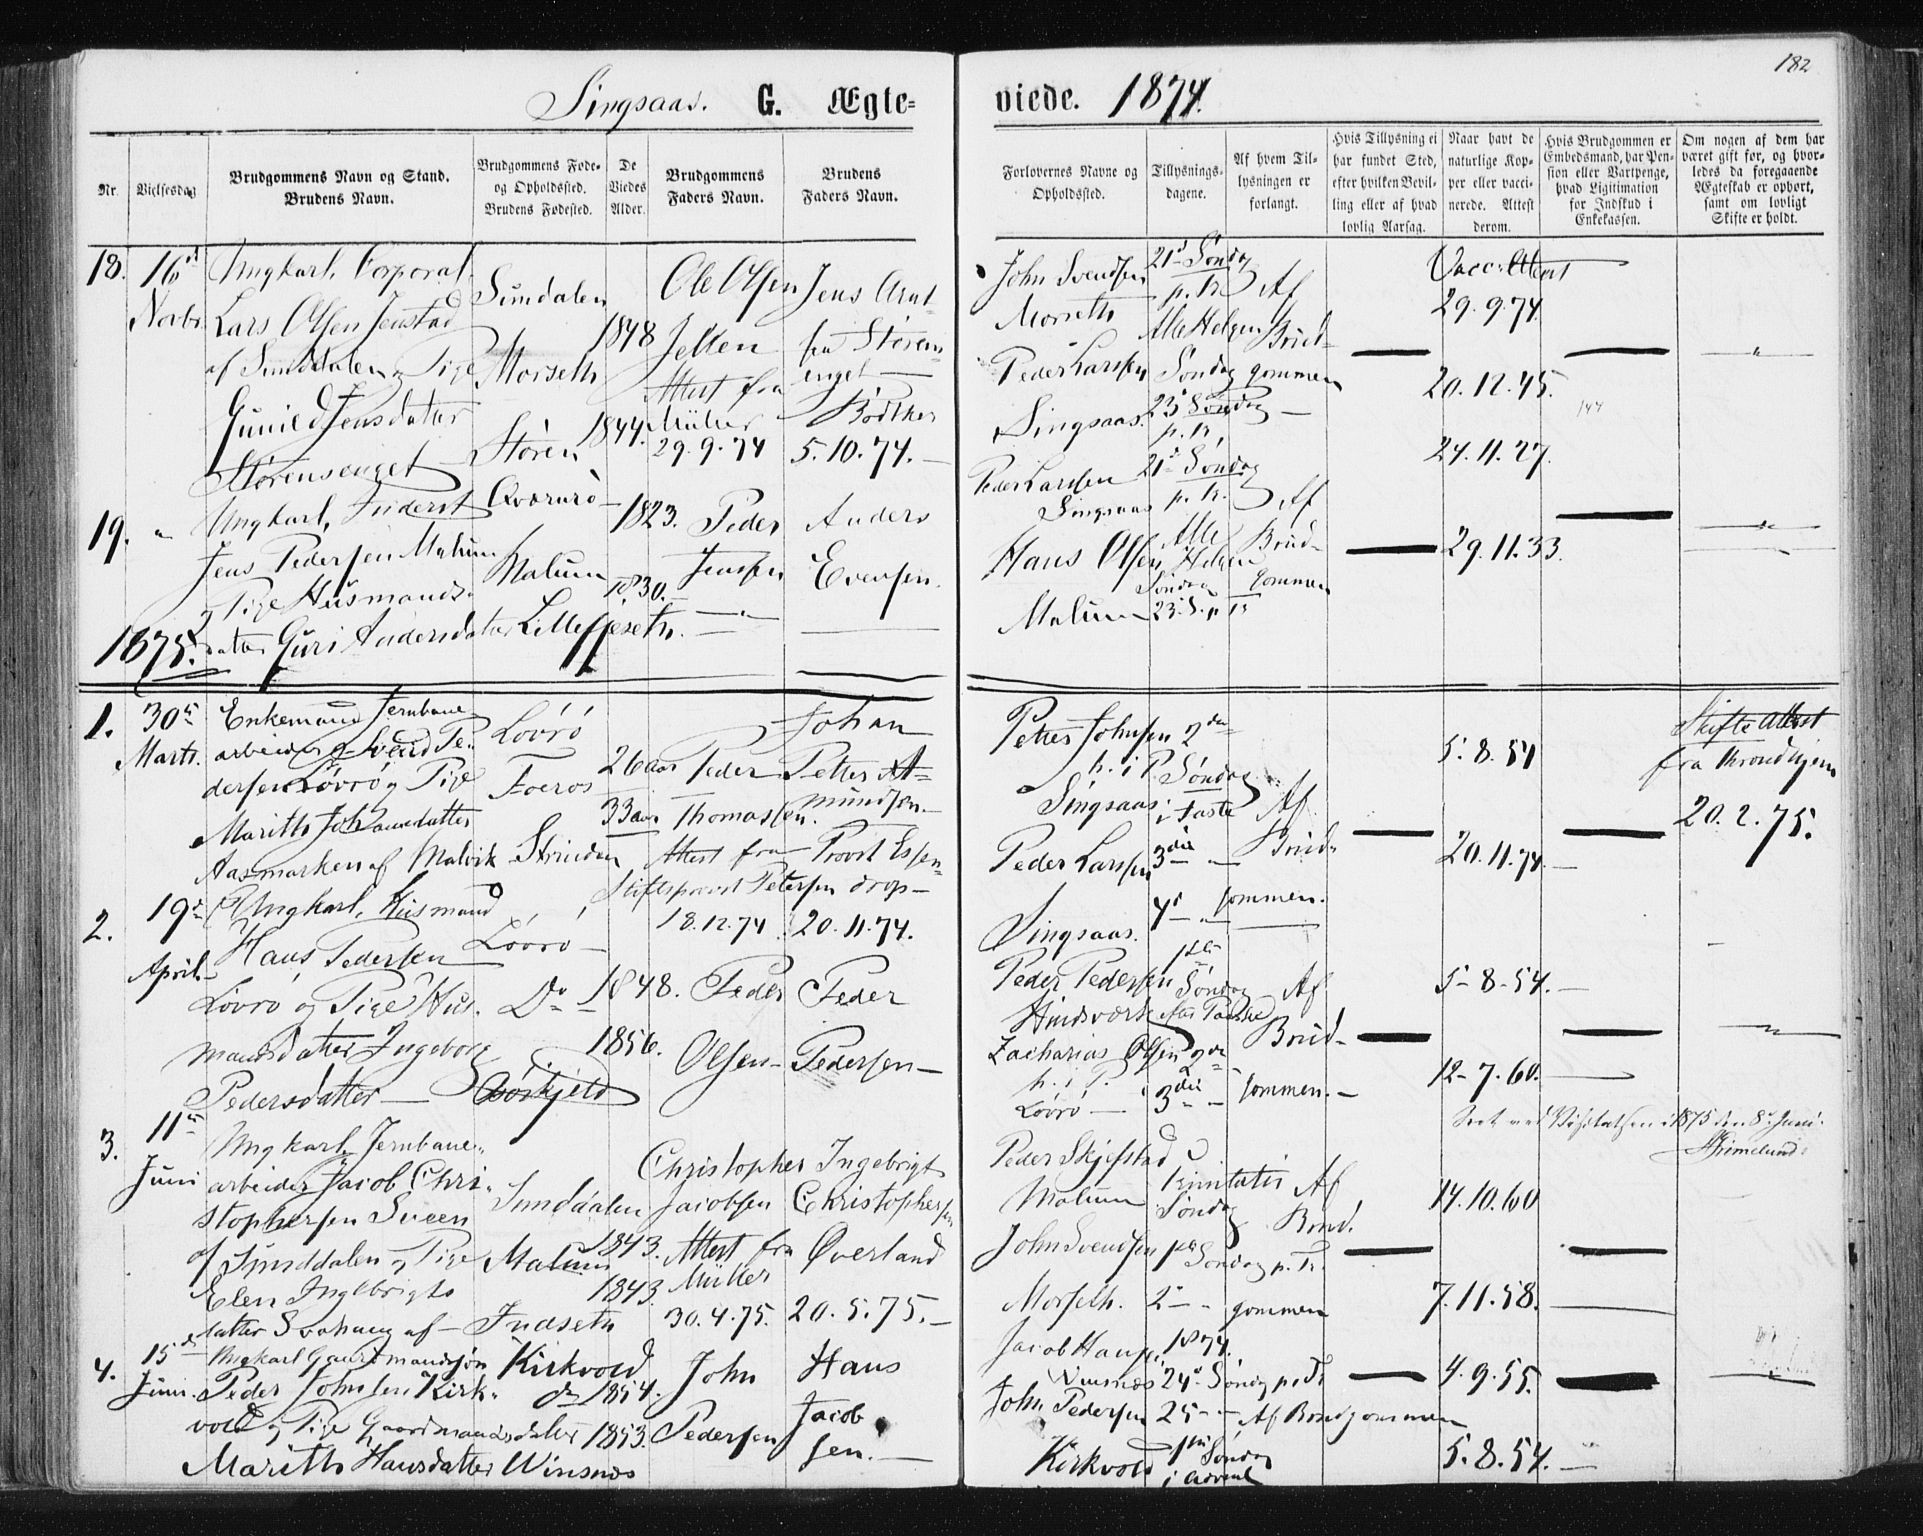 182
Singsaas. G. Ægte= viede. 1874.
Nr.
Vielsesdag
Brudgommens Navn og Stand.
Brudens Navn.
Brudgommens Føde-
og Opholdssted.
Brudens Fødested.
De
Viedes
Alder.
Brudgommens
Faders Navn.
Brudens
Faders Navn.
Forlovernes Navne og
Opholdssted.
Tillysnings-
dagene.
Af hvem Til-
lysningen er
forlangt.
Hvis Tillysning ei
har fundet Sted,
efter hvilken Bevil-
ling eller af hvad
lovlig Aarsag.
Naar havt de
naturlige Kop-
per eller vacci-
nerede. Attest
derom.
Hvis Brudgommen er
Embedsmand, har Pen-
sion eller Vartpenge,
hvad Ligitimation
for Indskud i
Enkekassen.
Om nogen af dem har
været gift før, og hvor-
ledes da foregaaende
Ægteskab er ophørt,
samt om lovligt
Skifte er holdt.
18.
16
Novbr
Ungkarl, Corporal
Lars Olsen Jenstad
af Sunddalen og Pige
Gunild Jensdatter
Størensenget
Sundalen
Morseth
Støren
1848
1844.
Ole Olsen
Jelken
Attest fra
Müller
29.9.74
Jens Arnt
fra Støren-
enget
Bødtker
5.10.74.
John Svendsen
Morseth
Peder Larssen
Singsaas.
21 Søndag
p. Tr.
Alle Helgen
Søndag
23 Søndag
p. Tr.
Af
Brud-
gommen
Vacc: Attest
29.9.74
20.12.45.
19.
"
Ungkarl, Inderst
Jens Pedersen Malum
og Pige Husmands-
datter Guri Andersdatter
Qværnrø
Malum
Lilleffjeseth.
1823.
1830.
Peder
Jensen
Anders
Evensen.
Peder Larssen
Singsaas
Hans Olsen
Malum
21 Søndag
p. Tr.
Alle
Helgen
Søndag
23. S. p Tr
Af
Brud-
gommen
24.11.27.
29.11.33.
1875.
1.
30
Marts.
Enkemand Jernbane
arbeider Svend Pe-
dersen Løvrø og Pige
Marith Johansdatter
Aasmarken af Malvik
Løvrø
Foeros
Strinden
26 aar
33 aar
Peder
Thomassen.
Attest fra
Stiftsprovst Petersen
18.12.74
Johan
Petter At-
mundsen.
Provst Essen-
drop
20.11.74.
Petter Johnsen
h. i P.
Singsaas
Peder Larssen
Singsaas.
2den
Søndag
i Faste
3die
4
Af
Brud-
gommen.
5.8.54
20.11.74.
Skifte Attest
fra Throndhjem
20.2.75.
2.
19
April
Ungkarl, Husmand
Hans Pedersen
Løvrø og Pige Hus-
mandsdatter Ingeborg
Pedersdatter
Løvrø
Do
Børkjeld
1848.
1856.
Peder
Olsen
Peder
Pedersen
Peder Pedersen
Hindsværk
Zacharias Olsen
h. i P.
Løvrø
1ste
Søndag
efter Paaske
2den
3die
Af
Brud-
gommen.
5-8-54.
12-7-60.
Seet ved Visitatsen i 1875 den 8. Juni.
Grimelund
3.
11
Juni
Ungkarl, Jernbane-
arbeider Jacob Chri-
stophersen Sveen
af Sunddalen og Pige
Elen Ingebrigts
datter Svahaug af
Sunddalen
Malum
Indseth
1843.
1843.
Christopher
Jacobsen
Attest fra
Müller
30.4.75.
Ingebrigt
Christophersen
Øverland
20.5.75.
Peder Skjefstad
Malum
John Svendsen
Morseth.
Trinitatis
Søndag
1ste Søndag p. Tr.
2
Af
Brud-
gommen
14.10.60
7.11.58.
4.
15
Juni.
Ungkarl Gaardmandssøn
Peder Johnsen Kirk-
vold og Pige Gaardmandsdatter
Marith Hansdatter
Kirkvold
Winsnes
1854.
1853.
John
Pedersen
Hans
Jacob
sen.
Jacob Hansen
Vinsnes
John Pedersen
Kirkvold
1874.
24 Søndag p. Tr
25
1ste Søndag
i Advent
Af Brudgommen
4.9.55.
5.8.54.